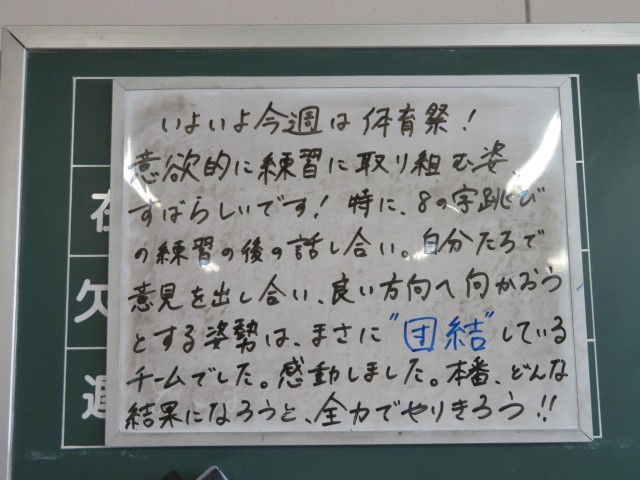 いよいよ今週は体育祭！
意欲的に練習に取り組む姿、
すばらしいです！特に、8の字跳び
の練習の後の話し合い。自分たちで
意見を出し合い、良い方向へ向かおう
とする姿勢は、まさに"団結"している
チームでした。感動しました。本番、どんな
結果になろうと、全力でやりきろう!!
欠